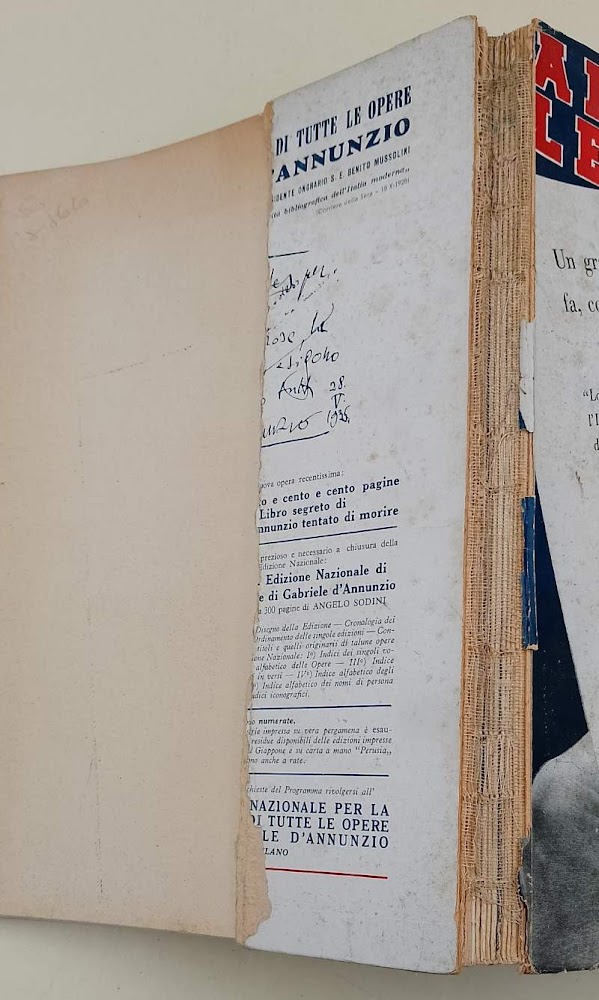 DI TUTTE LE OPERE
D'ANNUNZIO
IDENTE ONORARIO S. E. BENITO MUSSOLINI
bibliografica dell'Italia moderna„
(Corriere della Sera - 10-X-1926)
per.
28.
V.
1936.
uova opera recentissima:
o e cento e cento pagine
Libro segreto di
nnunzio tentato di morire
prezioso e necessario a chiusura della
Edizione Nazionale:
Edizione Nazionale di
e di Gabriele d'Annunzio
300 pagine di ANGELO SODINI
Disegno della Edizione — Cronologia dei
Ordinamento delle singole edizioni — Con-
titoli e quelli originarii di talune opere
ione Nazionale: I°) Indici dei singoli vo-
alfabetico delle Opere — III°) Indice
in versi — IV°) Indice alfabetico degli
°) Indice alfabetico dei nomi di persona
ndici iconografici.
numerate.
impressa su vera pergamena è esau-
residue disponibili delle edizioni impresse
Giappone e su carta a mano "Perusia„
mo anche a rate.
chieste del Programma rivolgersi all'
NAZIONALE PER LA
DI TUTTE LE OPERE
LE D'ANNUNZIO
ILANO
A
LE
Un gr
fa, co
"Lo
l'I
d